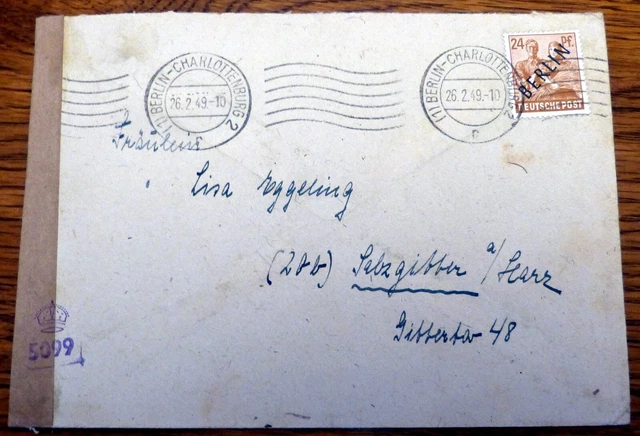 (1) BERLIN-CHARLOTTENBURG 2
26.2.49.-10
(1) BERLIN-CHARLOTTENBURG 2
26.2.49.-10
n
24 PF.
BERLIN
DEUTSCHE POST
Fräulein
Lisa Eggeling
(20b) Salzgitter a/Harz
Gittertor 48
5099